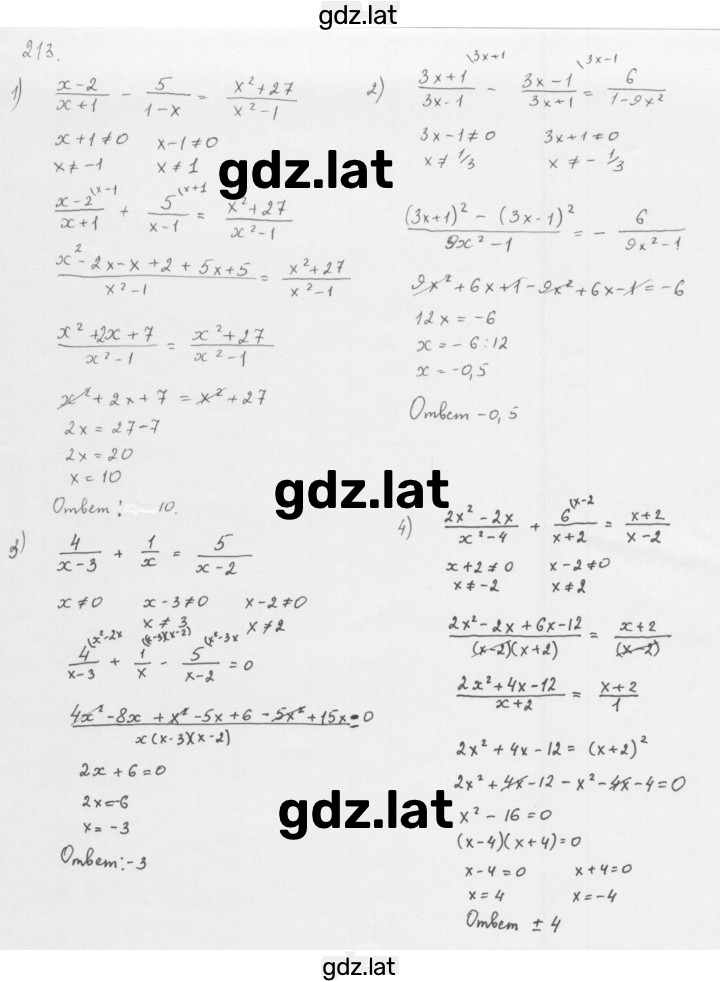 gdz.lat
213.
1) (x-2)/(x+1) - 5/(1-x) = (x²+27)/(x²-1)
x+1≠0 x-1≠0
x≠-1 x≠1
gdz.lat
(x-2)/(x+1) \x-1 + 5/(x-1) \x+1 = (x²+27)/(x²-1)
(x²-2x-x+2+5x+5)/(x²-1) = (x²+27)/(x²-1)
(x²+2x+7)/(x²-1) = (x²+27)/(x²-1)
x²+2x+7 = x²+27
2x = 27-7
2x = 20
x = 10
Ответ: 10.
2) (3x+1)/(3x-1) \3x+1 - (3x-1)/(3x+1) \3x-1 = 6/(1-9x²)
3x-1≠0 3x+1≠0
x≠1/3 x≠-1/3
((3x+1)² - (3x-1)²)/(9x²-1) = - 6/(9x²-1)
9x²+6x+1-9x²+6x-1=-6
12x = -6
x = -6:12
x = -0,5
Ответ -0,5
gdz.lat
3) 4/(x-3) + 1/x = 5/(x-2)
x≠0 x-3≠0 x-2≠0
x≠3 x≠2
4/(x-3) \x²-2x + 1/x \(x-3)(x-2) - 5/(x-2) \x²-3x = 0
(4x²-8x+x²-5x+6-5x²+15x)/(x(x-3)(x-2)) = 0
2x+6=0
2x=-6
x=-3
Ответ:-3
4) (2x²-2x)/(x²-4) + 6/(x+2) \x-2 = (x+2)/(x-2)
x+2≠0 x-2≠0
x≠-2 x≠2
(2x²-2x+6x-12)/((x-2)(x+2)) = (x+2)/(x-2)
(2x²+4x-12)/(x+2) = (x+2)/1
2x²+4x-12=(x+2)²
2x²+4x-12-x²-4x-4=0
x²-16=0
(x-4)(x+4)=0
x-4=0 x+4=0
x=4 x=-4
Ответ ±4
gdz.lat
gdz.lat